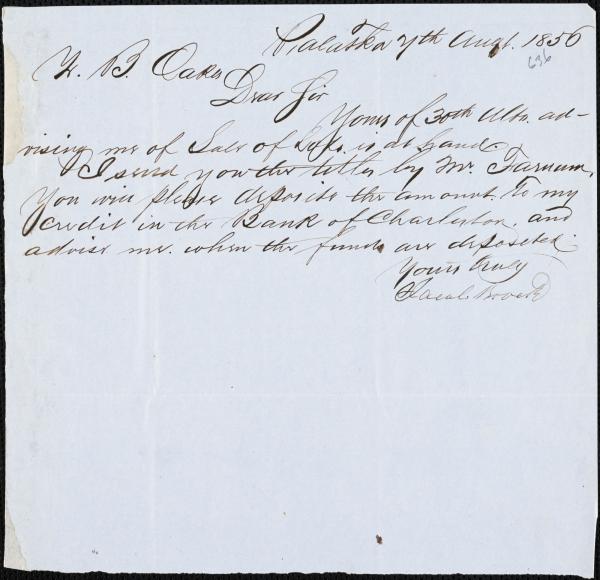 Palatka 7th Augt. 1856
636
Z. B. Oakes
Dear Sir
Yours of 30th Ulto. ad-
vising me of Sale of is at hand
I send you the titles by Mr. Farnum,
You will please deposite the amount to my
credit in the Bank of Charleston, and
advise me when the funds are deposited.
Yours truly
Jacob Brock